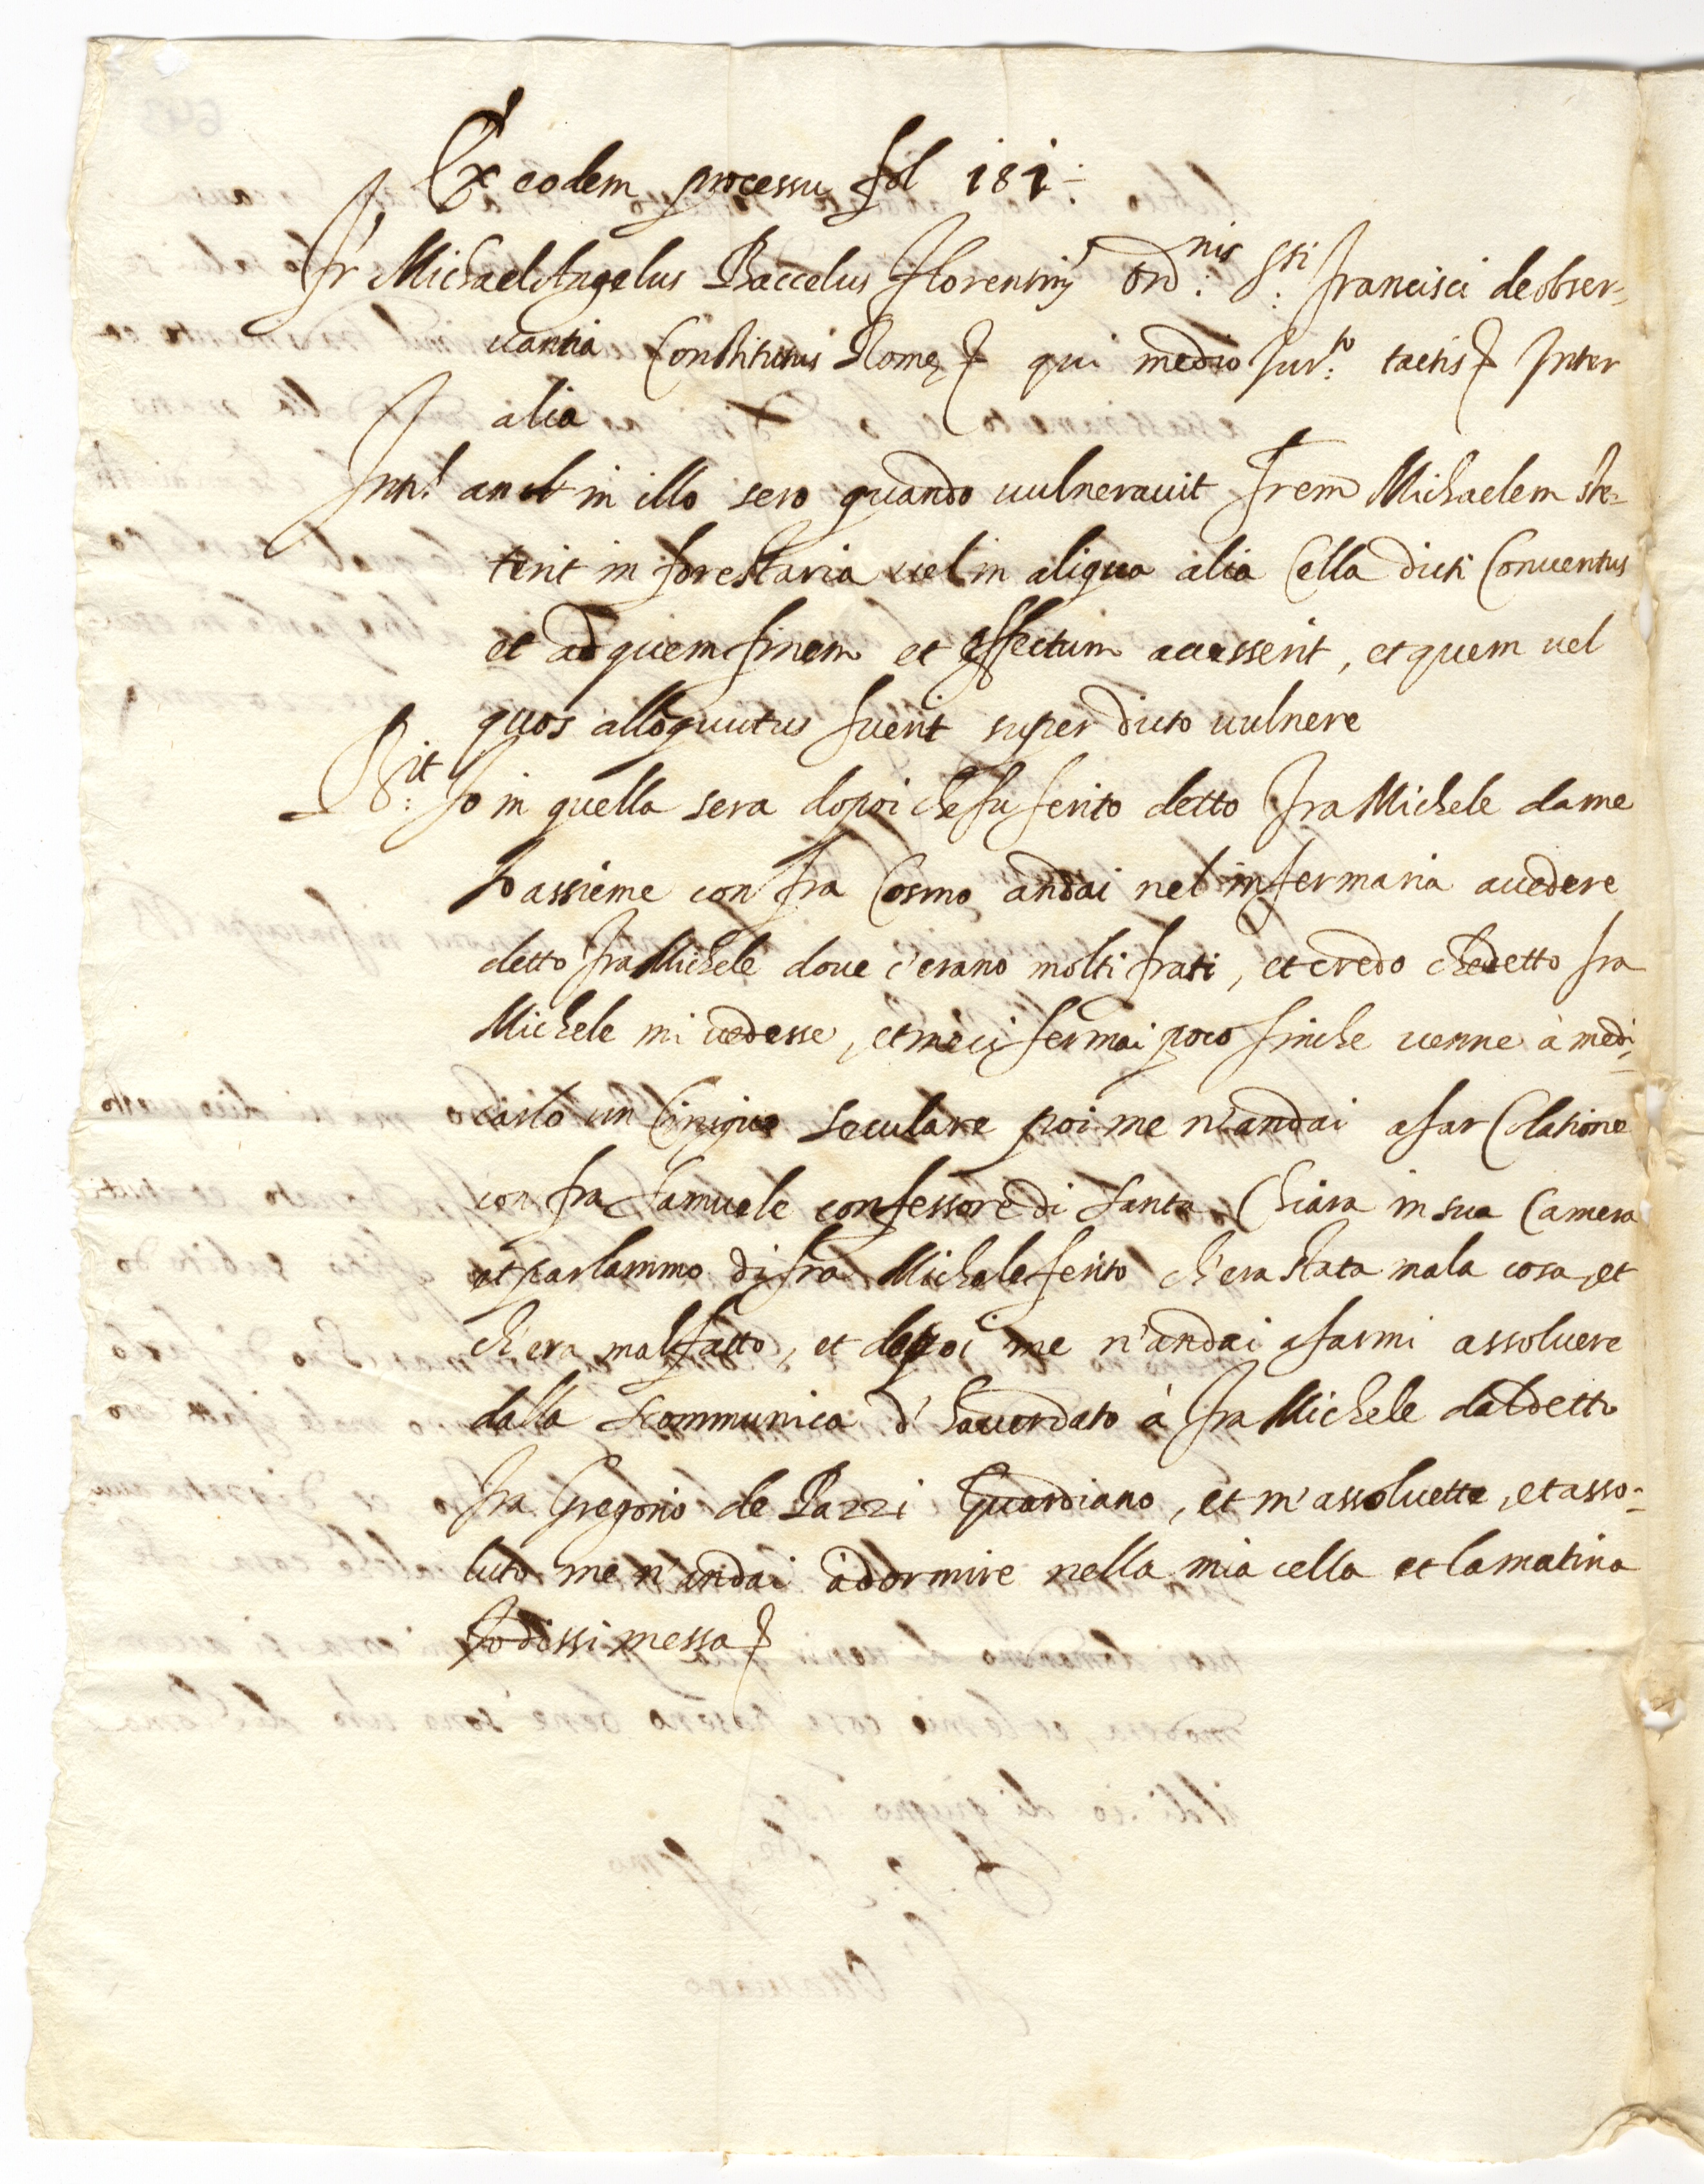 Ex eodem processu fol 181.
Fr Michael Angelus Baccelus Florentin9 Ord.nis S.ti Francisci de obser-
uantia Constitutus Romę & qui medio Jur.to tactis & Inter
alia
Int! an in illo sero quando uulnerauit Frem Michaelem ste-
terit in forestaria uel in aliqua alia Cella dicti Conuentus
et ad quem finem et effectum accesserit, et quem uel
quos alloquutus fuerit super dicto uulnere
R.it Io in quella sera dopoi che fu ferito detto Fra Michele da me
Io assieme con fra Cosmo andai nel infermaria a uedere
detto Fra Michele doue c'erano molti frati, et credo che detto fra
Michele mi uedesse, et me ci fermai poco finche uenne à medi-
carlo un Cirugico seculare poi me n'andai a far Colatione
con fra Samuele confessore di Santa Chiara in sua Camera
et parlammo di fra Michele ferito ch'era stata mala cosa, et
ch'era mal fatto, et depoi me n'andai a farmi assoluere
dalla scommunica d' hauer dato à Fra Michele dal detto
Fra Gregorio de Pazzi Guardiano, et m'assoluette, et asso-
luto me n'andai à dormire nella mia cella et la matina
Io dissi messa &